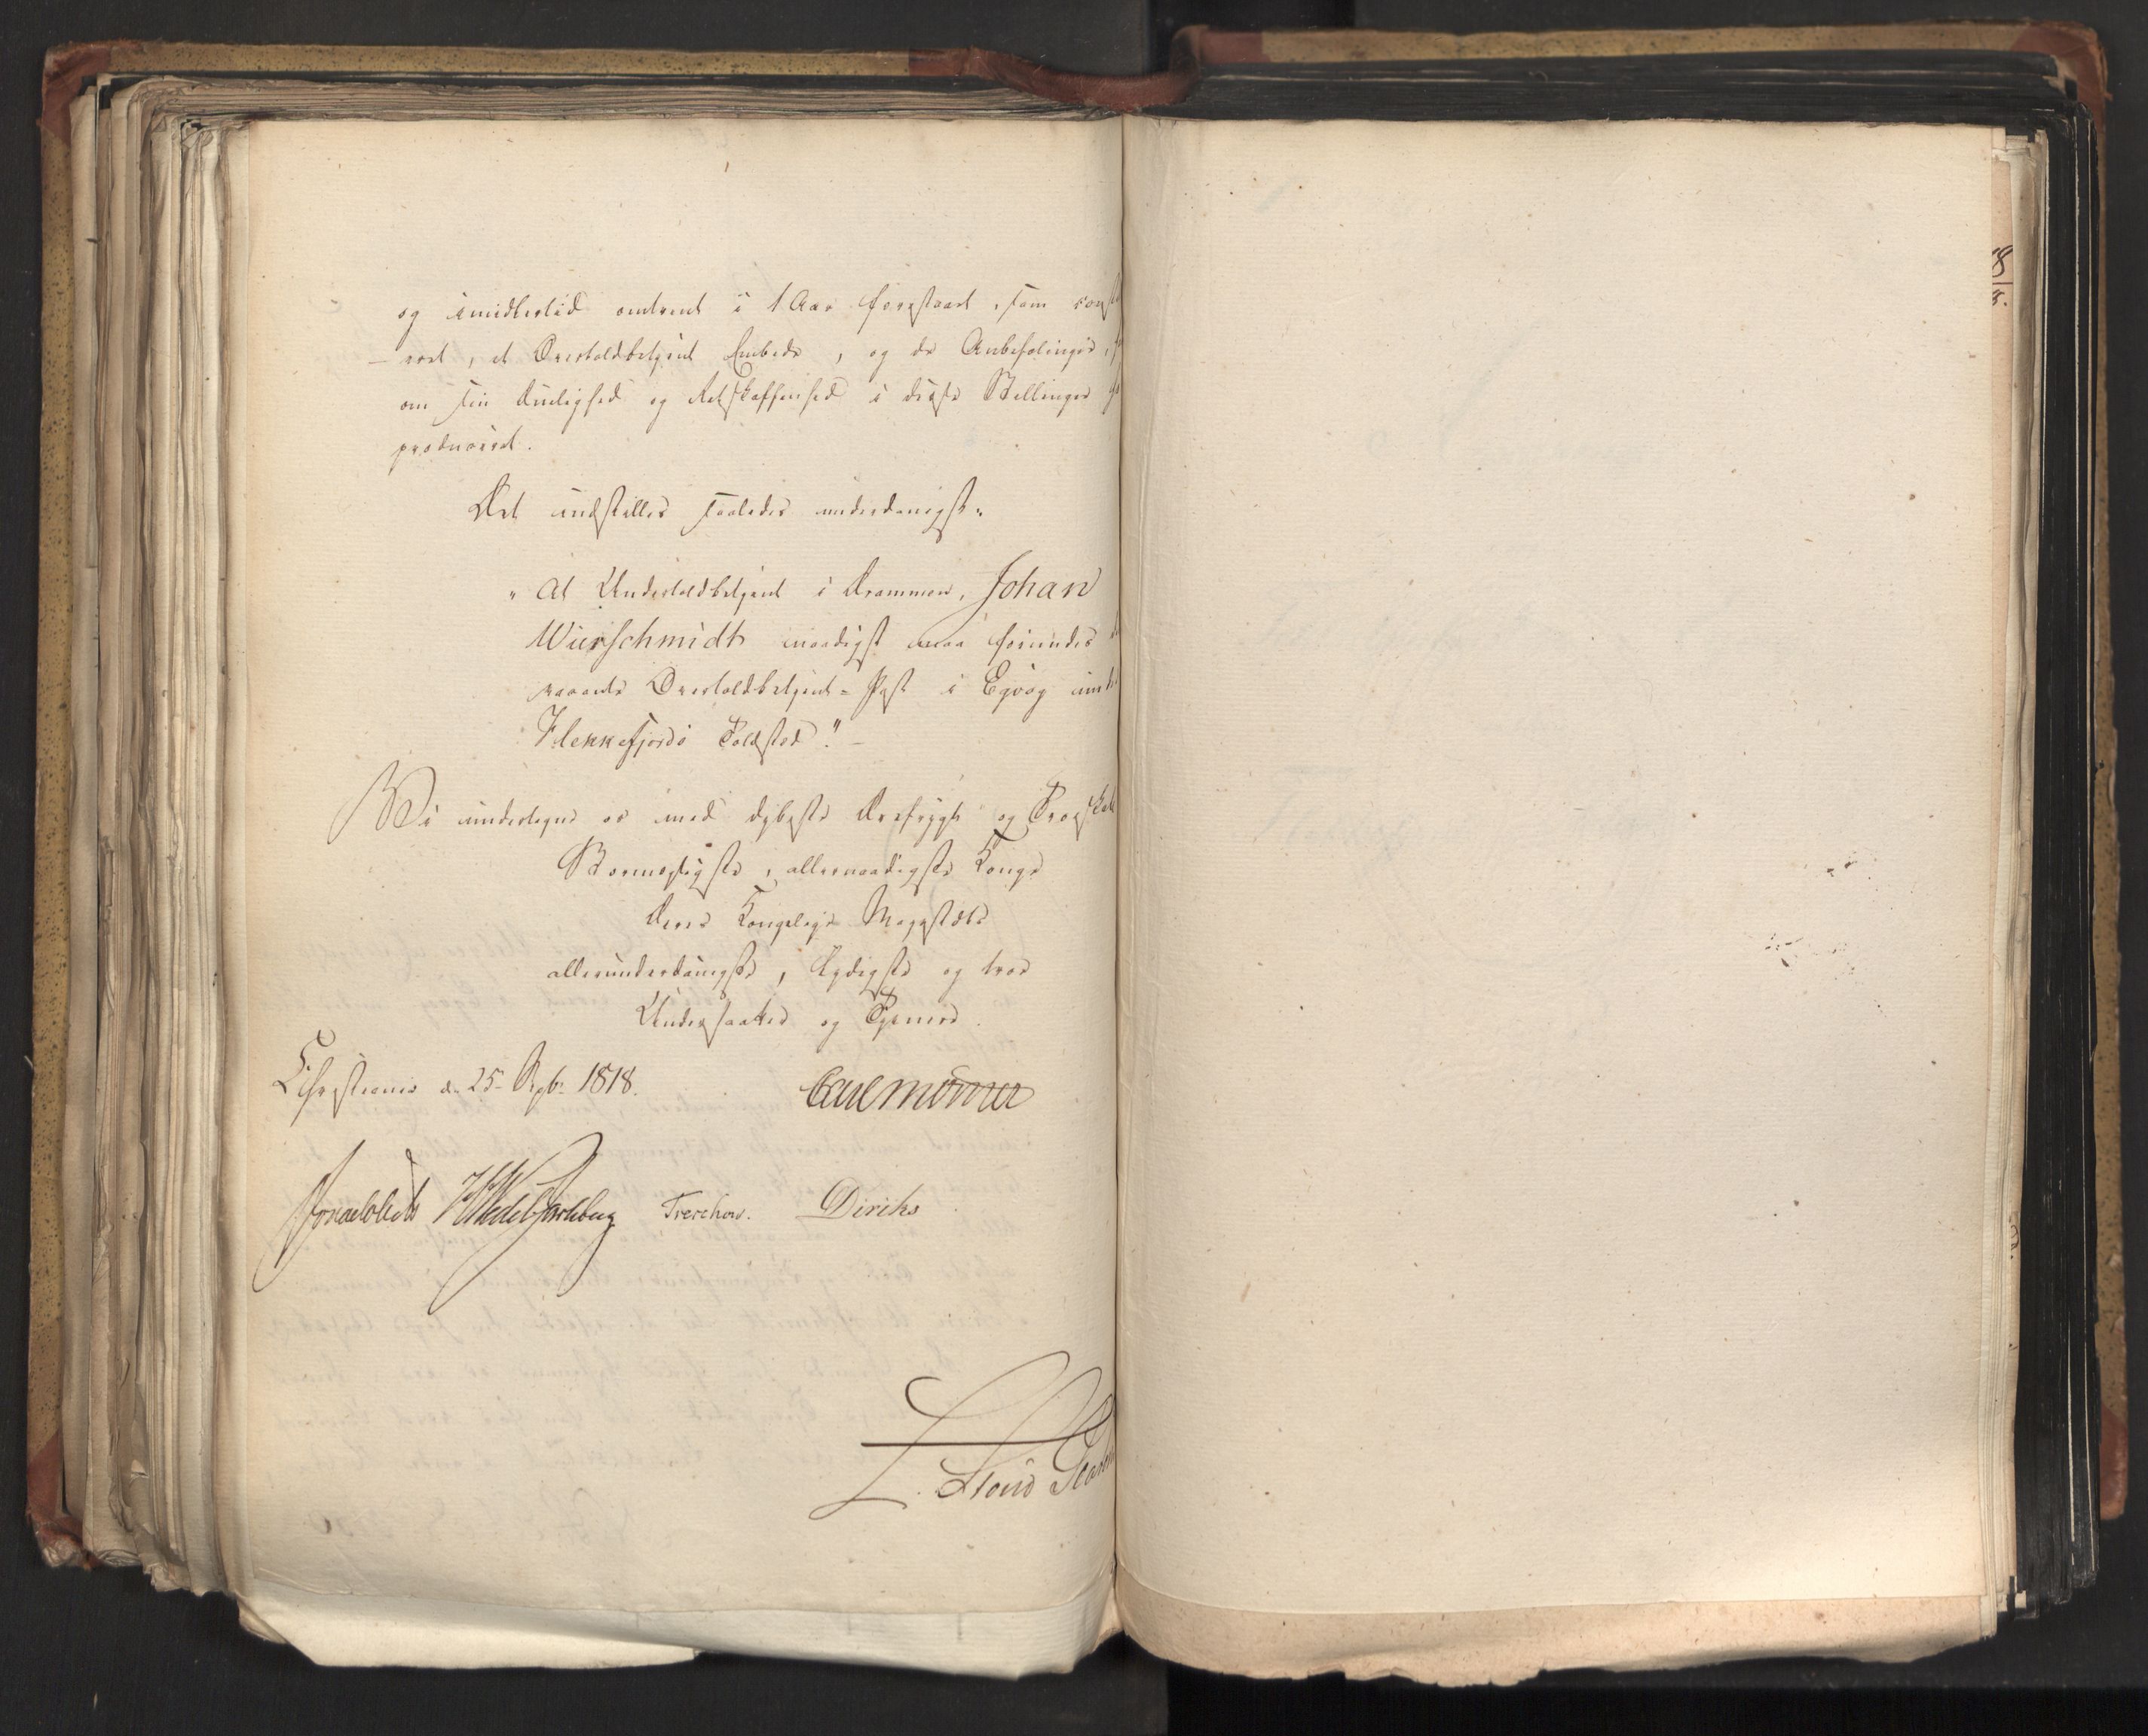 og imidlertid omtrent i 1 Aar forestaaet, som const
-eret, et Overtoldbetjent Embede, og de Anbefalinger,
om sin Duelighed og Retskaffenhed i disse Stillinger
produceret.
Det indstilles saaledes underdanigst:
"At Undertoldbetjent i Drammen, Johan
Wurschmidt naadigst maa forundes
vacante Overtoldbetjent-Post i Egvog und
Flekkefjords Toldsted." -
Vi undertegne os med dybeste Ærefrygt og Troeskab
Stormægtigste, allernaadigste Konge
Deres Kongelige Majestæts
allerunderdanigste, lydigste og troe
Undersaatter og Tjenere.
Christiania d. 25 Septbr 1818.
Carl Mörner
Sommerhielm HWedelJarlsberg Treschow. Diriks
L. Stoud Platou